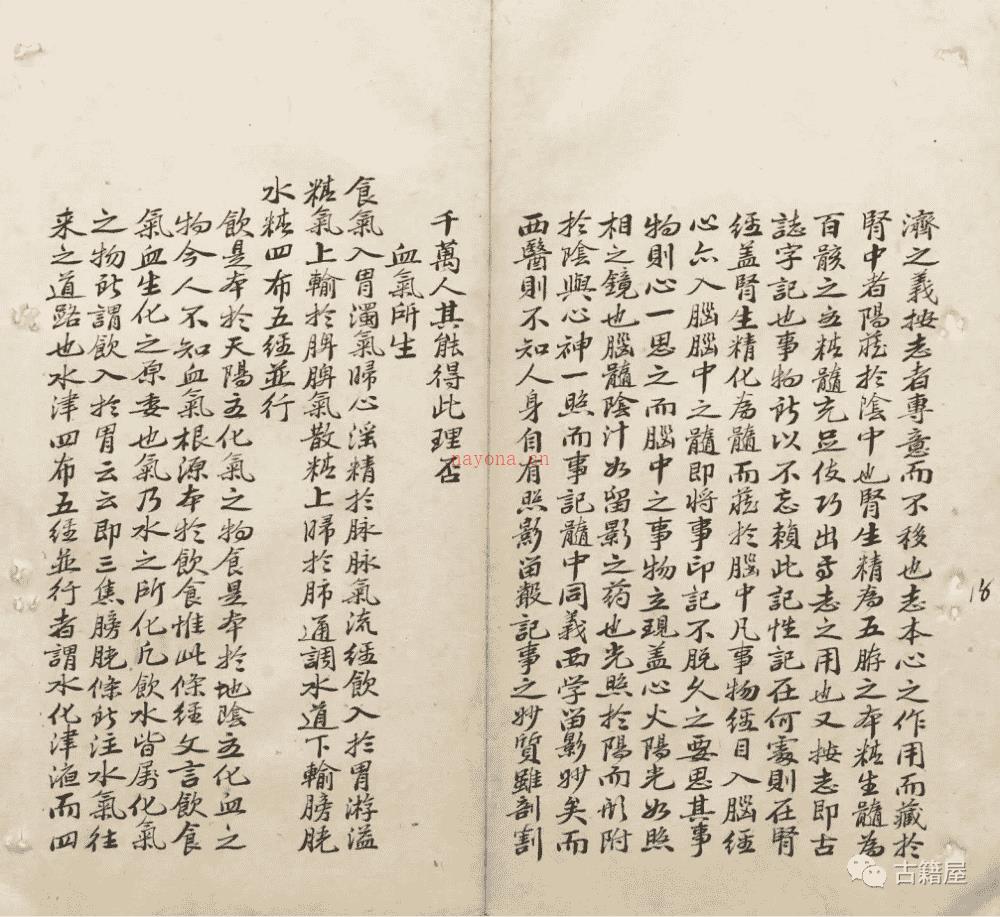 濟之義按志者專意而不移也志本心之作用而藏於
腎中者陽蔵於陰中也腎生精為五臟之本精生髓為
百骸之主精髓充足伎巧出焉志之用也又按志即古
誌字記也事物所以不忘賴此記性記在何處則在腎
經蓋腎生精化為髓而蔵於腦中凡事物經目入腦經
心亦入腦腦中之髓即將事印記不脫久之要思其事
物則心一思之而腦中之事物立現蓋心火陽光如照
相之鏡也腦髓陰汁如留影之药也光照於陽而形附
於陰與心神一照而事記髓中同義西学畱影妙矣而
西醫則不知人身自有照影畱
記事之妙質雖剖割
18
千萬人其能得此理否
血氣所生
食氣入胃濁氣歸心淫精於脉脉氣流經飲入於胃游溢
精氣上輸於脾脾氣散精上歸於肺通調水道下輸膀胱
水精四布五經並行
飲是本於天陽主化氣之物食是本於地陰主化血之
物今人不知血氣根源本於飲食惟此條經文言飲食
氣血生化之原委也氣乃水之所化凡飲水皆属化氣
之物所謂飲入於胃云云即三焦膀胱條所注水氣往
来之道路也水津四布五經並行者謂水化津液而四
nayona.cn
古籍屋